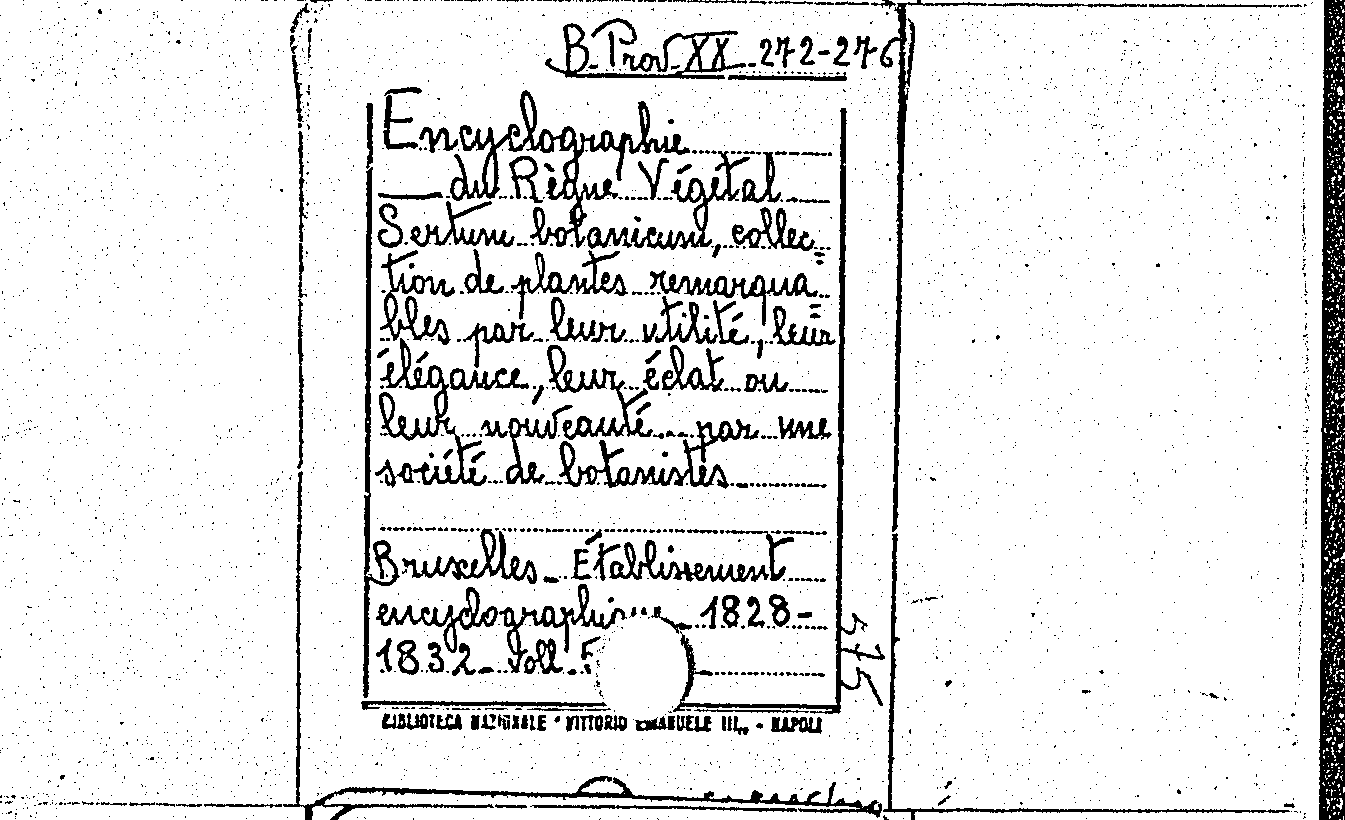 B. Prov. XX 272-276
Encyclographie
du Règne Végétal
Sertum botanicum, collec=
tion de plantes remarqua=
bles par leur utilité, leur
élégance, leur éclat ou
leur nouveauté... par une
société de botanistes -
Bruxelles - Etablissement
encyclographique - 1828 -
1832 - Voll. 5
515
BIBLIOTECA NAZIONALE "VITTORIO EMANUELE III" - NAPOLI